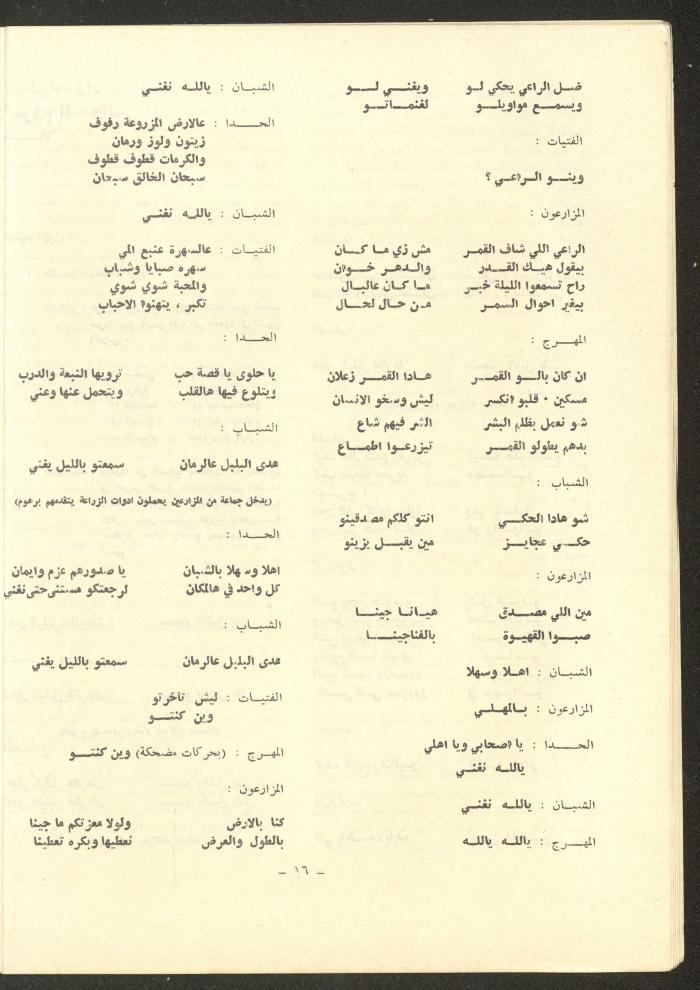 ضل الراعي يحكي لو ويغني لو
ويسمع مواويلو لغنماتو
الفتيات :
وينو الراعي ؟
المزارعون :
الراعي اللي شاف القمر مش زي ما كان
بيقول هيك القدر والدهر خوان
راح تسمعوا الليلة خبر ما كان عالبال
بيغير احوال السمر من حال لحال
المهرج :
ان كان بالو القمر هادا القمر زعلان
مسكين ٠ قلبو انكسر ليش وسخو الانسان
شو نعمل بظلم البشر الشر فيهم شاع
بدهم يطولو القمر تيزرعوا اطماع
الشباب :
شو هادا الحكي انتو كلكم مصدقينو
حكي عجايز مين يقبل يزينو
المزارعون :
مين اللي مصدق هيانا جينا
صبوا القهيوة بالفناجينا
الشبان : اهلا وسهلا
المزارعون : بالمهلي
الحدا : يا اصحابي ويا اهلي
يالله نغني
الشبان : يالله نغني
المهرج : يالله يالله
الشبان : يالله نغني
الحدا : عالارض المزروعة رفوف
زيتون ولوز ورمان
والكرمات قطوف قطوف
سبحان الخالق سبحان
الشبان : يالله نغني
الفتيات : عالسهرة عنبع المي
سهره صبايا وشباب
والمحبة شوي شوي
تكبر ، يتهنوا الاحباب
الحدا :
يا حلوى يا قصة حب ترويها النبعة والدرب
ويتلوع فيها هالقلب ويتحمل عنها وعني
الشباب :
هدى البلبل عالرمان سمعتو بالليل يغني
(يدخل جماعة من المزارعين يحملون ادوات الزراعة يتقدمهم برهوم)
الحدا :
اهلا وسهلا بالشبان يا صدورهم عزم وايمان
كل واحد في هالمكان لرجعتكو مستني حتى نغني
الشباب :
هدى البلبل عالرمان سمعتو بالليل يغني
الفتيات : ليش تأخرتو
وين كنتو
المهرج : (بحركات مضحكة) وين كنتو
المزارعون :
كنا بالارض ولولا معزتكم ما جينا
بالطول والعرض نعطيها وبكره تعطينا
- ١٦ -